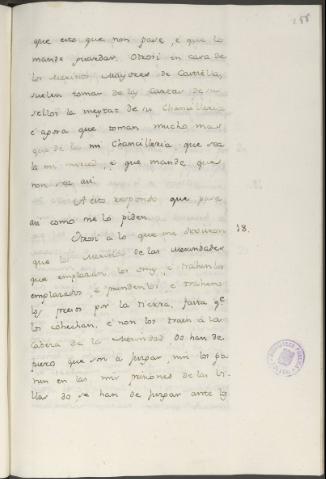 158
que esto que non pase, e que lo
mande guardar. Otrosi en casa de
los Merinos Mayores de Castiella,
suelen tomar de las cartas de su
sellos la meytat de su Chancilleria
e agora que toman mucho mas
que de la mi Chancilleria que sea
la mi merced, e que mande que
non sea asi.
A esto respondo que pase
asi como me lo piden.
Otrosi à lo que me dixieron 18.
que los Merinos de las Merindades
que emplazan los omes, e trahenlos
emplazados, e prendenlos e trahenlos
los presos por la tierra, fasta qe
los cohechan, e non los traen à la
cabeza de la Merindad do han de
pero que son à juzgar nin los pa
ran en las mis prisiones de las Vi-
llas do se han de juzgar ante los